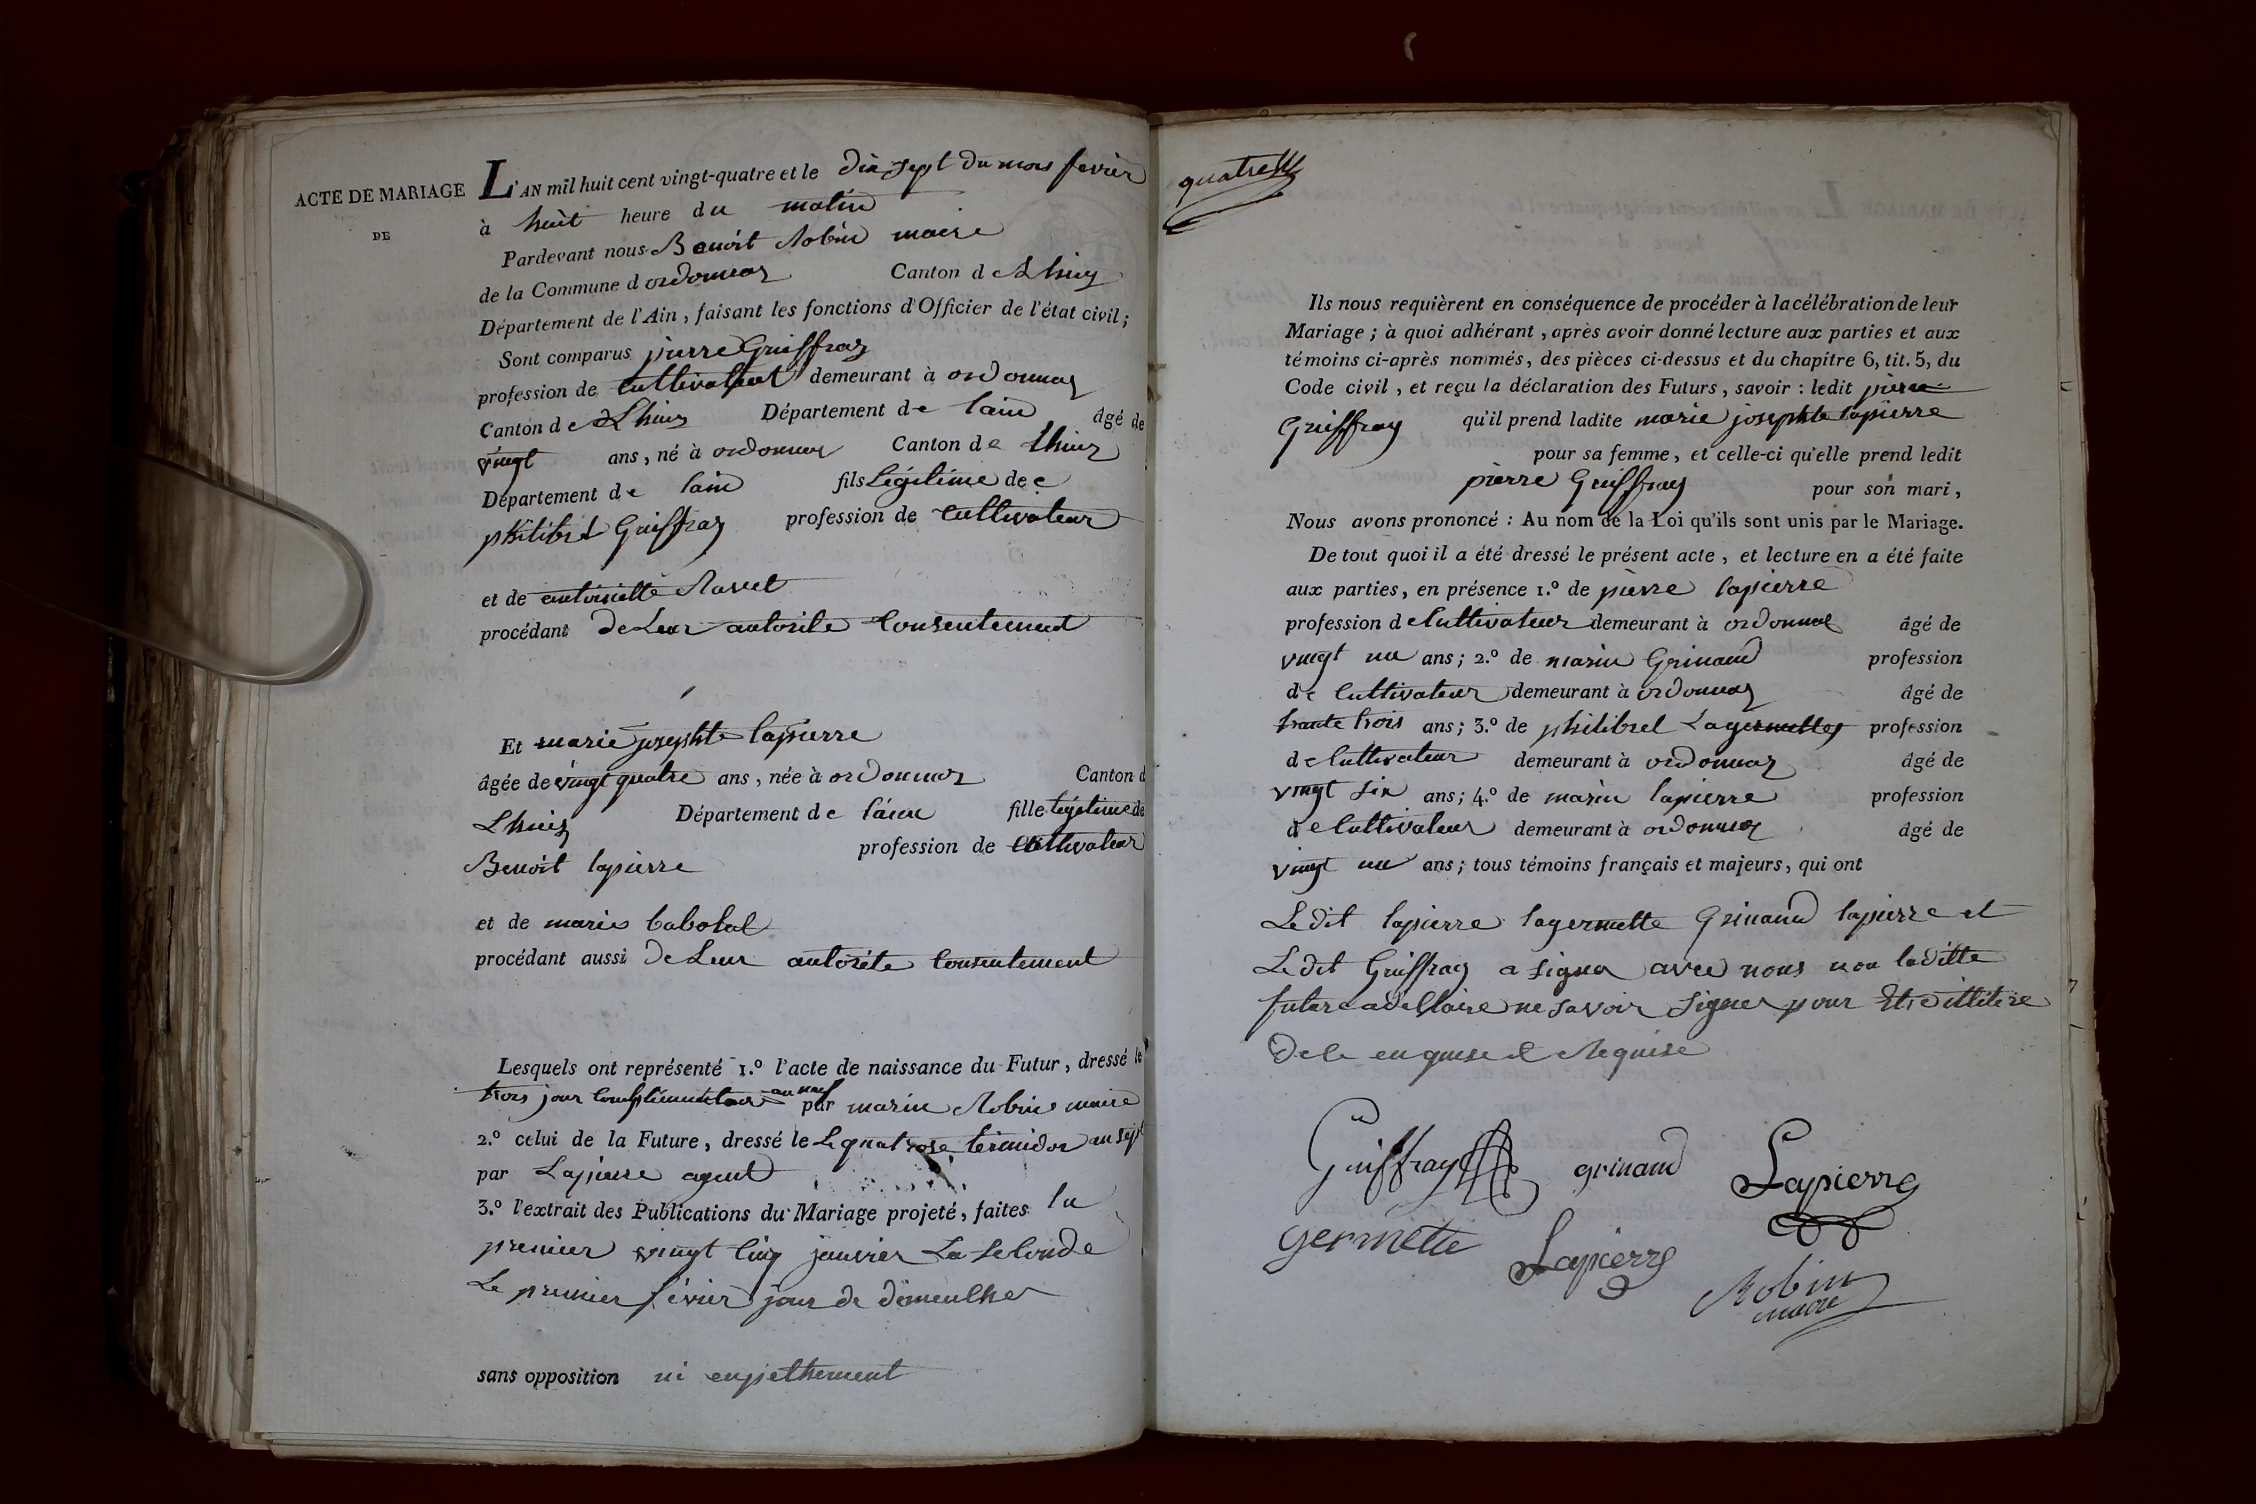 ACTE DE MARIAGE
DE
L'AN mil huit cent vingt-quatre et le dix sept du mois fevrier
à huit heure du matin
Pardevant nous Benoit Robin maire
de la Commune d ordonnaz Canton de Lhuiz
Département de l'Ain, faisant les fonctions d'Officier de l'état civil;
Sont comparus pierre Guiffray
profession de cultivateur demeurant à ordonnaz
Canton de Lhuis Département de lain âgé de
vingt ans, né à ordonnaz Canton de Lhuiz
Département de lain fils Légitime de
philibert Guiffray profession de cultivateur
et de antoinette Ravet
procédant de Leur autorite consentement
Et marie josephte lapierre
âgée de vingt quatre ans, née à ordonnaz Canton d
Lhuis Département de lain fille legitime de
Benoit lapierre profession de cultivateur
et de marie
procédant aussi de Leur autorite consentement
Lesquels ont représenté 1.º l'acte de naissance du Futur, dressé le
trois jour complementaire an neuf par marin Robin maire
2.º celui de la Future, dressé le Le quatrose termidor an sept
par Lapierre agent
3.º l'extrait des Publications du Mariage projeté, faites la
premier vingt cinq janvier La seconde
Le premier fevrier jour de
sans opposition ni enpethement
quatre
Ils nous requièrent en conséquence de procéder à la célébration de leur
Mariage; à quoi adhérant, après avoir donné lecture aux parties et aux
témoins ci-après nommés, des pièces ci-dessus et du chapitre 6, tit. 5, du
Code civil, et reçu la déclaration des Futurs, savoir: ledit pierre
Guiffray qu'il prend ladite marie josephte lapierre
pour sa femme, et celle-ci qu'elle prend ledit
pierre Guiffray pour son mari,
Nous avons prononcé: Au nom de la Loi qu'ils sont unis par le Mariage.
De tout quoi il a été dressé le présent acte, et lecture en a été faite
aux parties, en présence 1.º de pierre lapierre
profession de cultivateur demeurant à ordonnaz âgé de
vingt un ans; 2.º de marin Grinand profession
de cultivateur demeurant à ordonnaz âgé de
trante trois ans; 3.º de philibert profession
de cultivateur demeurant à ordonnaz âgé de
vingt six ans; 4.º de marin lapierre profession
de cultivateur demeurant à ordonnaz âgé de
vingt un ans; tous témoins français et majeurs, qui ont
Ledit lapierre lagermette Grinand lapierre et
Ledit Guiffray a signer avec nous non laditte
future ne savoir signer pour Etre
de ce enquise et Requise
Guiffray grinand Lapierre
germette Lapierre
Robin
maire